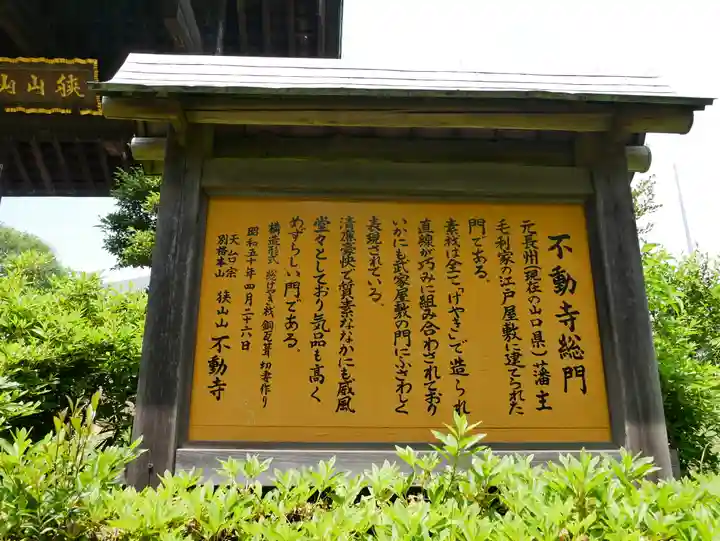 狭山山
不動寺総門
元長州(現在の山口県)藩主
毛利家の江戸屋敷に建てられた
門である。
素材は全て「けやき」で造られ
直線が巧みに組み合わされており
いかにも武家屋敷の門にふさわしく
表現されている。
清廉豪快で質素ななかにも威風
堂々としており気品も高く
めずらしい門である。
構造形式 総けやき材 銅瓦葺 切妻作り
昭和五十年四月二十六日
天台宗
別格本山 狭山山 不動寺